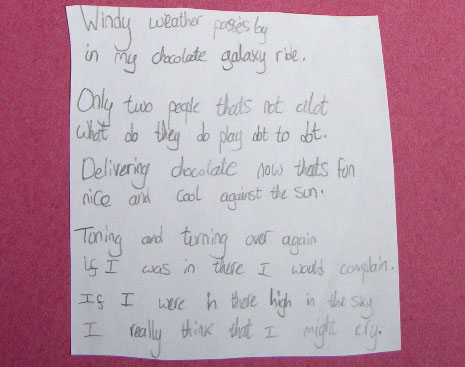 Windy weather passes by
in my chocolate galaxy ride.
Only two people thats not alot
what do they do play dot to dot.
Delivering chocolate now thats fun
nice and cool against the sun.
Toning and turning over again
if I was in there I would complain.
If I were in there high in the sky
I really think that I might cry.